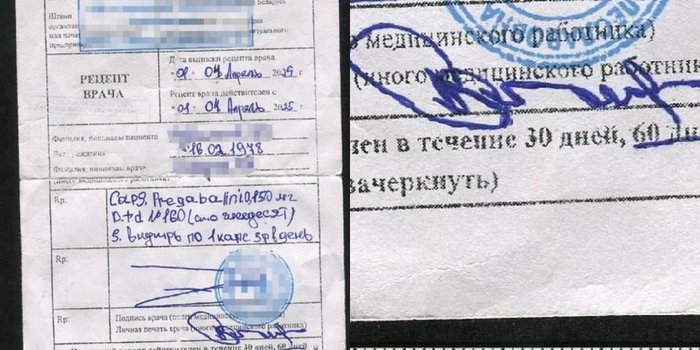 Беларусь
(Штамп
организа
РЕЦЕПТ
ВРАЧА
Дата выписки рецепта врача
01 04 Апрель 2025 г.
Рецепт врача действителен с
01 04 Апрель 2025 г.
Фамилия, инициалы пациента
Дата рождения
18.02.1978
Фамилия, инициалы врача
Rp:
Caps. Pregabalini 0,150 мг
D.t.d N°160 (сто шесдесят)
S. внутрь по 1 капс 3 р в день
Rp:
Rp:
Подпись врача (иного медицинского
Личная печать врача (иного медицинского работника)
действителен в течение 30 дней, 60 дней
медицинского работника)
(иного медицинского работник
лен в течение 30 дней, 60 дн
зачеркнуть)